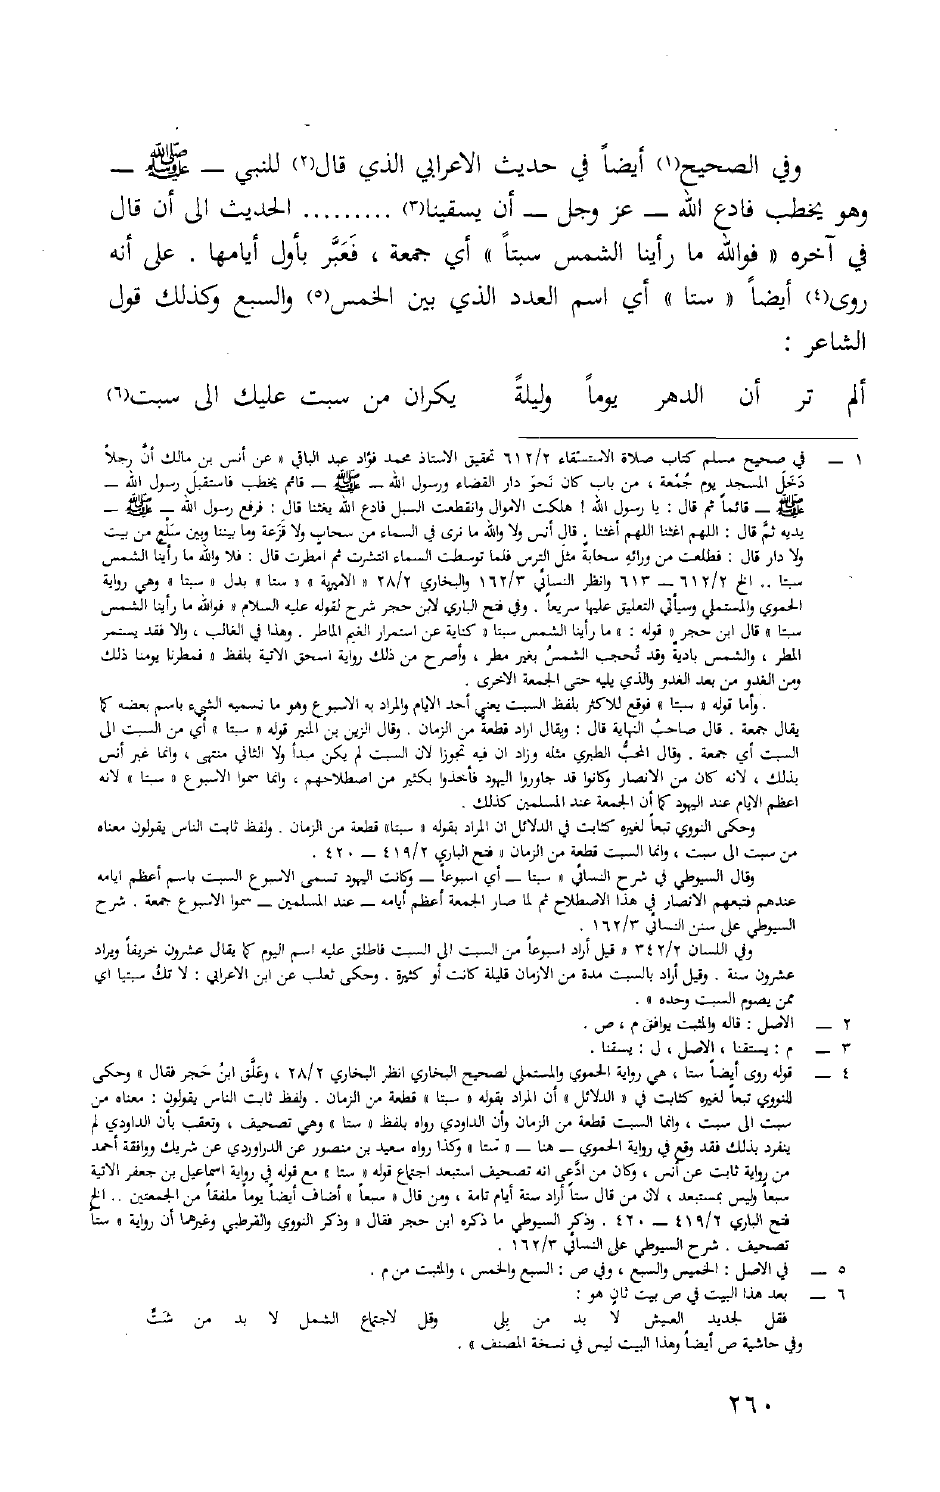 وفي الصحيح(١) أيضاً في حديث الاعرابي الذي قال(٢) للنبي — ﷺ —
وهو يخطب فادع الله — عز وجل — أن يسقينا(٣) ......... الحديث الى أن قال
في آخره « فوالله ما رأينا الشمس سبتاً » أي جمعة ، فَعَبَّر بأول أيامها . على أنه
روى(٤) أيضاً « ستا » أي اسم العدد الذي بين الخمس(٥) والسبع وكذلك قول
الشاعر :
ألم تر أن الدهر يوماً وليلةً يكران من سبت عليك الى سبت(٦)
١ — في صحيح مسلم كتاب صلاة الاستسقاء ٦١٢/٢ تحقيق الاستاذ محمد فؤاد عبد الباقي « عن أنس بن مالك أنَّ رجلاً
دَخَل المسجد يوم جُمُعة ، من باب كان نَحوَ دار القضاء ورسول الله — ﷺ — قائم يخطب فاستقبلَ رسول الله —
ﷺ — قائماً ثم قال : يا رسول الله ! هلكت الاموال وانقطعت السبل فادع الله يغثنا قال : فرفع رسول الله — ﷺ —
يديه ثمَّ قال : اللهم اغثنا اللهم أغثنا . قال أنس ولا والله ما نرى في السماء من سحاب ولا قَزَعة وما بيننا وبين سَلْع من بيت
ولا دار قال : فطلعت من ورائه سحابة مثل الترس فلما توسطت السماء انتشرت ثم امطرت قال : فلا والله ما رأينا الشمس
سبتا .. الخ ٦١٢/٢ — ٦١٣ وانظر النسائي ١٦٢/٣ والبخاري ٢٨/٢ « الاميرية » « ستا » بدل « سبتا » وهي رواية
الحموي والمستملي وسيأتي التعليق عليها سريعاً . وفي فتح الباري لابن حجر شرح لقوله عليه السلام « فوالله ما رأينا الشمس
سبتا » قال ابن حجر « قوله : « ما رأينا الشمس سبتا « كناية عن استمرار الغيم الماطر . وهذا في الغالب ، والا فقد يستمر
المطر ، والشمس باديةٌ وقد تُحجب الشمسُ بغير مطر ، وأصرح من ذلك رواية اسحق الاتية بلفظ « فمطرنا يومنا ذلك
ومن الغدو من بعد الغدو والذي يليه حتى الجمعة الاخرى .
. وأما قوله « سبتا » فوقع للاكثر بلفظ السبت يعني أحد الايام والمراد به الاسبوع وهو ما نسميه الشيء باسم بعضه كما
يقال جمعة . قال صاحبُ النهاية قال : ويقال اراد قطعةً من الزمان . وقال الزين بن المنير قوله « سبتا » أي من السبت الى
السبت أي جمعة . وقال المحبُّ الطبري مثله وزاد ان فيه تجوزا لان السبت لم يكن مبدأ ولا الثاني منتهى ، وانما عبر أنس
بذلك ، لانه كان من الانصار وكانوا قد جاوروا اليهود فأخذوا بكثير من اصطلاحهم ، وانما سموا الاسبوع « سبتا » لانه
اعظم الايام عند اليهود كما أن الجمعة عند المسلمين كذلك .
وحكى النووي تبعاً لغيره كثابت في الدلائل ان المراد بقوله « سبتا» قطعة من الزمان . ولفظ ثابت الناس يقولون معناه
من سبت الى سبت ، وانما السبت قطعة من الزمان « فتح الباري ٤١٩/٢ — ٤٢٠ .
وقال السيوطي في شرح النسائي « سبتا — أي اسبوعاً — وكانت اليهود تسمى الاسبوع السبت باسم أعظم ايامه
عندهم فتبعهم الانصار في هذا الاصطلاح ثم لما صار الجمعة أعظم أيامه — عند المسلمين — سموا الاسبوع جمعة . شرح
السيوطي على سنن النسائي ١٦٢/٣ .
وفي اللسان ٣٤٢/٢ « قيل أراد اسبوعاً من السبت الى السبت فاطلق عليه اسم اليوم كما يقال عشرون خريفاً ويراد
عشرون سنة . وقيل أراد بالسبت مدة من الازمان قليلة كانت أو كثيرة . وحكى ثعلب عن ابن الاعرابي : لا تكُ سبتيا اي
ممن يصوم السبت وحده » .
٢ — الاصل : قاله والمثبت يوافق م ، ص .
٣ — م : يستقنا ، الاصل ، ل : يسقنا .
٤ — قوله روى أيضاً ستا ، هي رواية الحموي والمستملي لصحيح البخاري انظر البخاري ٢٨/٢ ، وعَلَّق ابنُ حَجر فقال » وحكى
للنووي تبعاً لغيره كثابت في « الدلائل » أن المراد بقوله « سبتا » قطعة من الزمان . ولفظ ثابت الناس يقولون : معناه من
سبت الى سبت ، وانما السبت قطعة من الزمان وأن الداودي رواه بلفظ « ستا » وهي تصحيف ، وتعقب بأن الداودي لم
ينفرد بذلك فقد وقع في رواية الحموي — هنا — « سَتا » وكذا رواه سعيد بن منصور عن الدراوردي عن شريك ووافقة أحمد
من رواية ثابت عن أنس ، وكان من ادَّعى انه تصحيف استبعد اجتماع قوله « ستا » مع قوله في رواية اسماعيل بن جعفر الاتية
سبعاً وليس بمستبعد ، لان من قال ستاً أراد ستة أيام تامة ، ومن قال « سبعاً » أضاف أيضاً يوماً ملفقاً من الجمعتين .. الخ
فتح الباري ٤١٩/٢ — ٤٢٠ . وذكر السيوطي ما ذكره ابن حجر فقال « وذكر النووي والقرطبي وغيرهما أن رواية » ستاً
تصحيف . شرح السيوطي على النسائي ١٦٢/٣ .
٥ — في الاصل : الخميس والسبع ، وفي ص : السبع والخمس ، والمثبت من م .
٦ — بعد هذا البيت في ص بيت ثانٍ هو :
فقل لجديد العيش لا بد من بِلى وقل لاجتماع الشمل لا بد من شَتٌ
وفي حاشية ص أيضاً وهذا البيت ليس في نسخة المصنف » .
٢٦٠